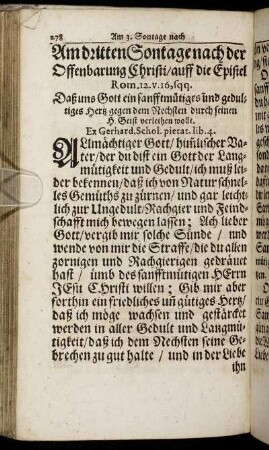 278 Am 3. Sontage nach
Am dritten Sontage nach der
Offenbarung Christi/auff die Epistel
Rom. 12. v. 16. sqq.
Daß uns Gott ein sanfftmütiges und gedul-
tiges Hertz gegen dem Nechsten durch seinen
H. Geist verleihen wolle.
Ex Gerhard. Schol. pietat. lib. 4.
ALlmächtiger Gott/ him̃lischer Va-
ter/ der du bist ein Gott der Lang-
mütigkeit und Gedult/ich muß lei-
der bekennen/daß ich von Natur schnel-
les Gemüths zu zürnen/ und gar leicht-
lich zur Ungedult/Rachgier und Feind-
schafft mich bewegen lassen: Ach lieber
Gott/vergib mir solche Sünde / und
wende von mir die Straffe/die du allen
zornigen und Rachgierigen gedräuet
hast / umb des sanfftmütigen HErrn
JEsu CHristi willen: Gib mir aber
forthin ein friedliches uñ gütiges Hertz/
daß ich möge wachsen und gestärcket
werden in aller Gedult und Langmü-
tigkeit/daß ich dem Nechsten seine Ge-
brechen zu gut halte / und in der Liebe
ihn